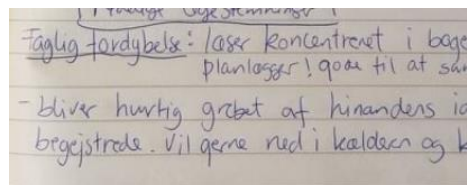 Faglig fordybelse: læser koncentreret i bøge
planlægger! gode til at sa
- bliver hurtig grebet af hinandens id
begejstrede. Vil gerne ned i kælderen og k